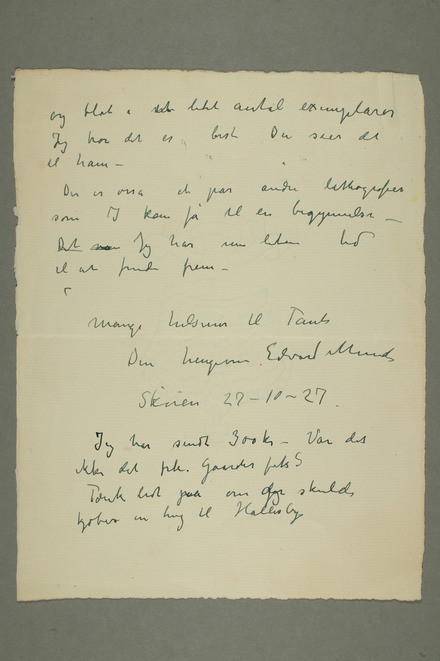 og blot i et lidet antal exemplarer
Jeg tror det er bedst Du sier det
til ham –
Der er også et par andre lithografier
som I kan få til en begynnelse –
Det Jeg har nu liten tid
til at finde frem –
Mange hilsener til Tante
Din hengivne Edvard Munch
Skøien 27–10–27.
Jeg har sendt 300 kr – Var det
ikke det frk. Gaarder fik?
Tænk lidt paa om jeg skulde
kjøbe en ting til Halfsby